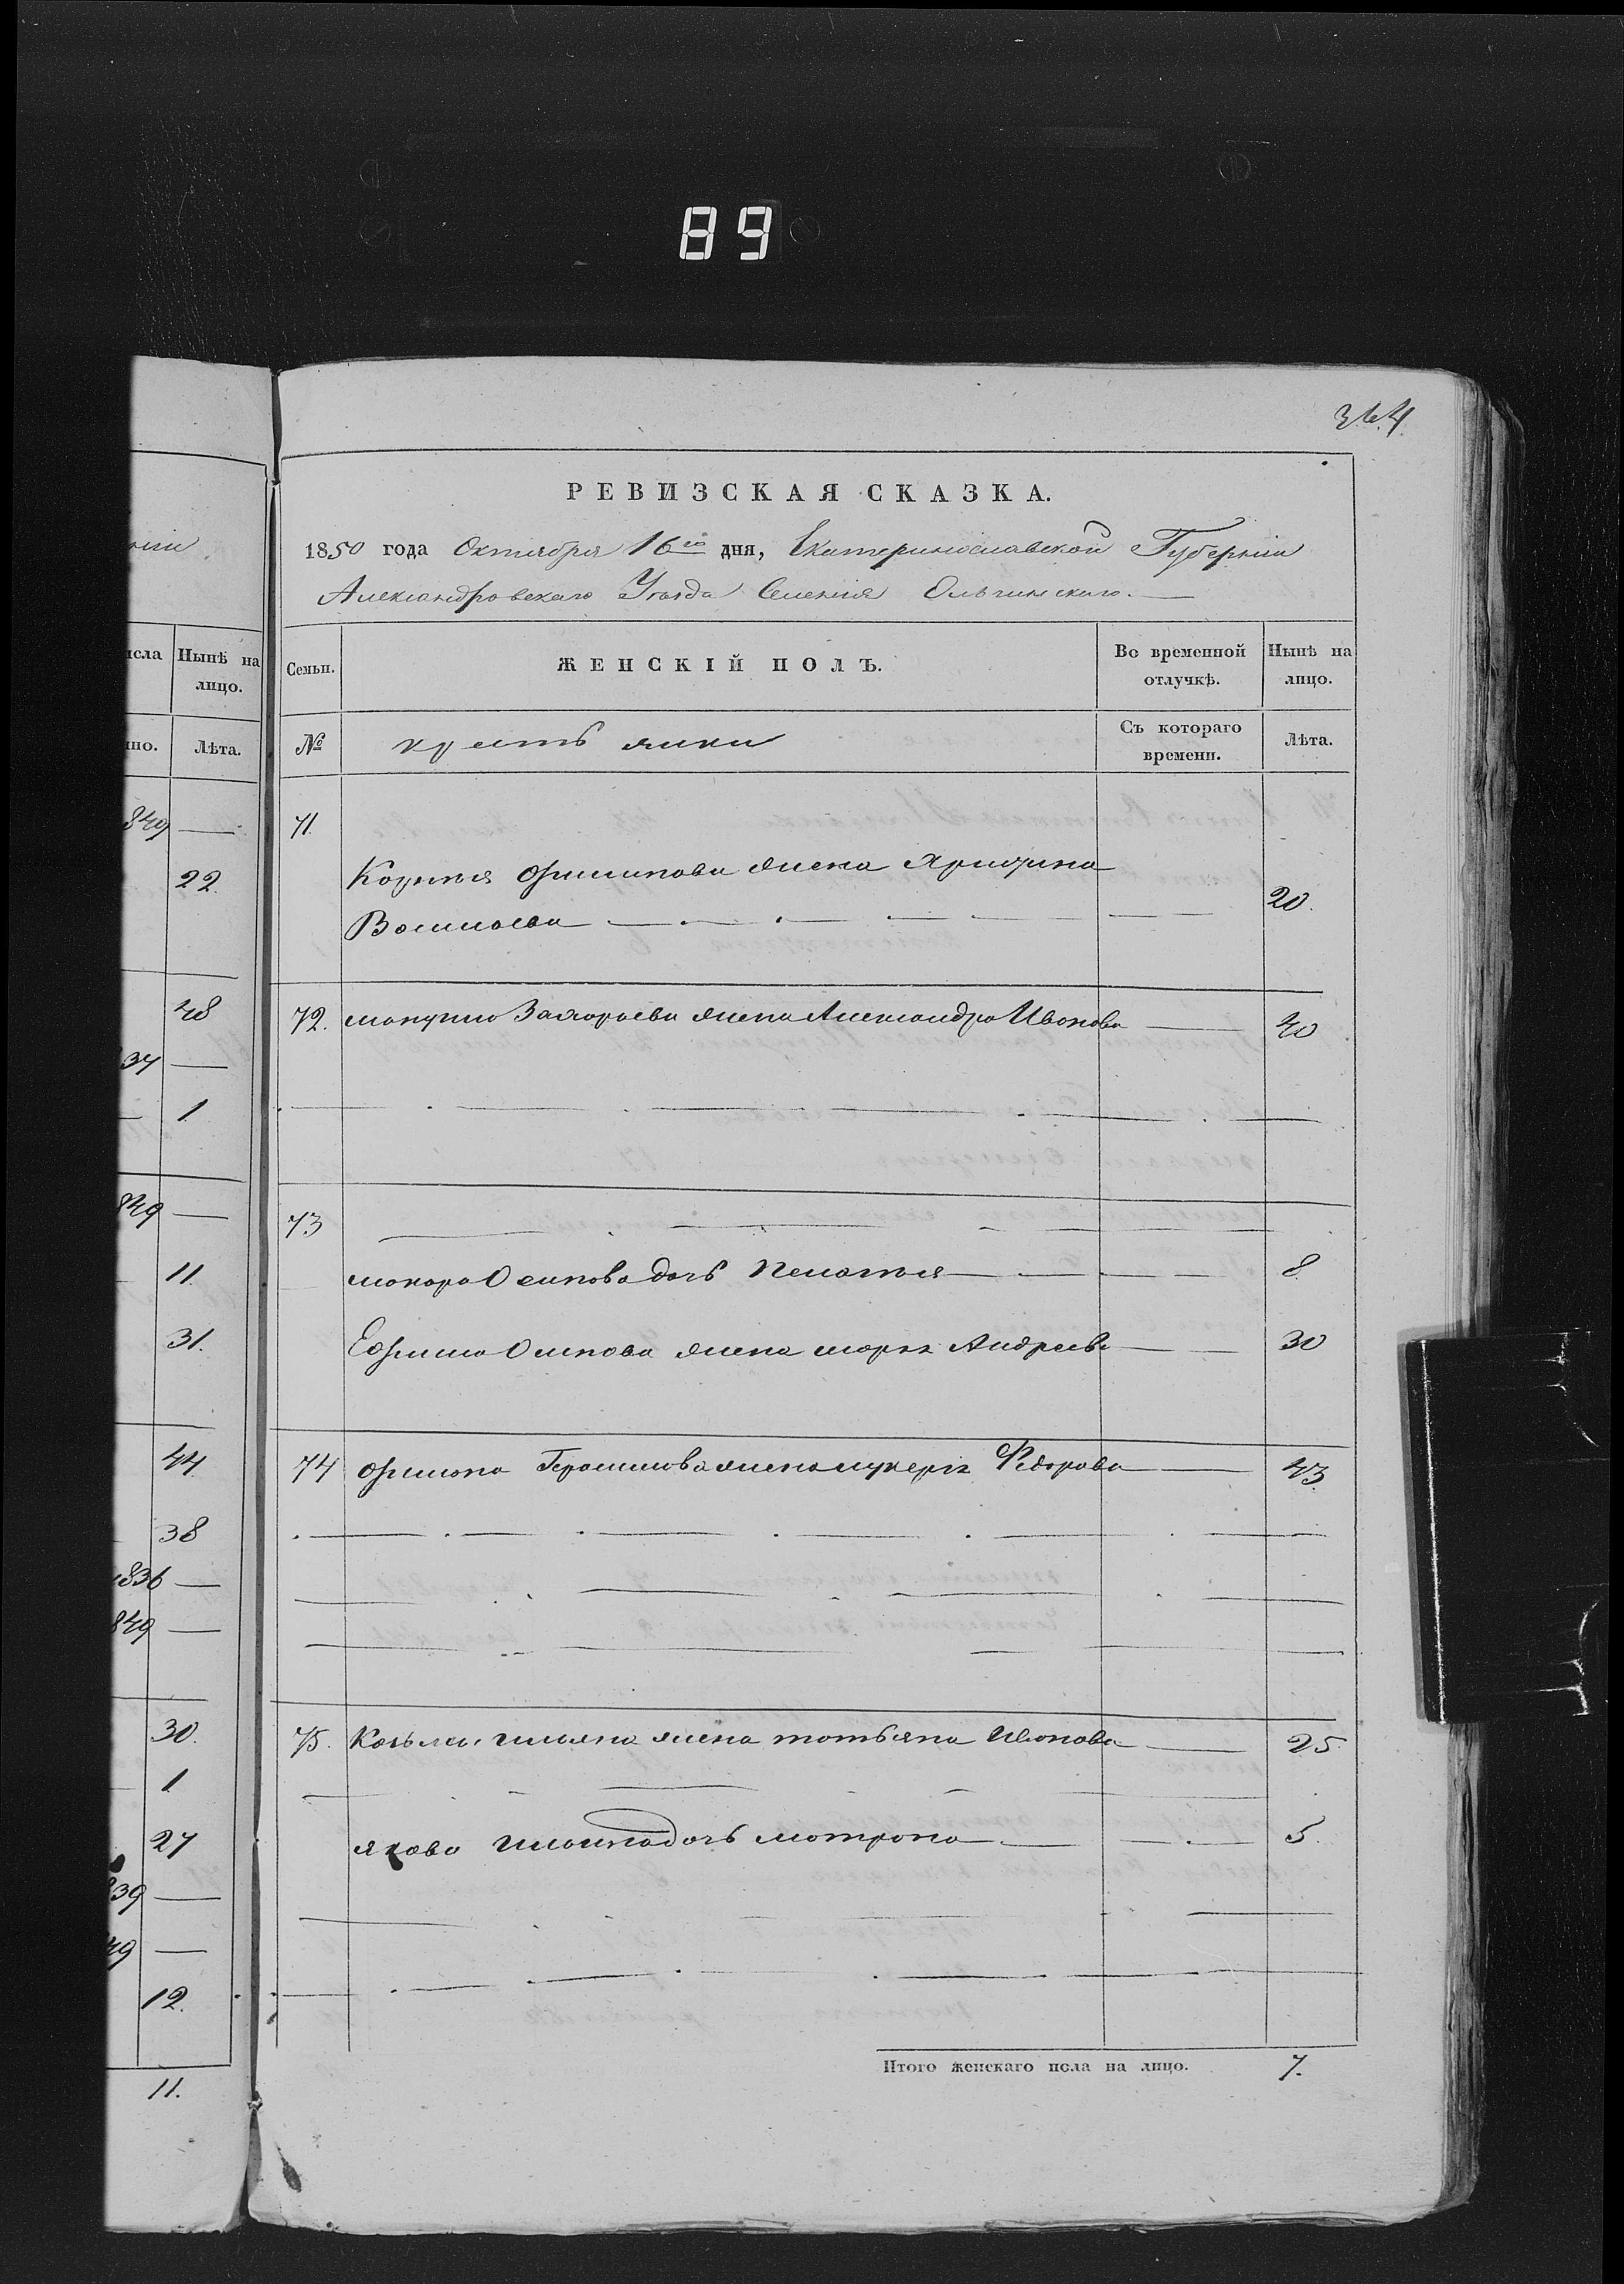 89
364.
РЕВИЗСКАЯ СКАЗКА.
1850 года Октября 16го дня, Екатеринославской Губернiи
Александровскаго Уезда Селенiя Ольгинскаго.
Семьи. ЖЕНСКІЙ ПОЛЪ. Во временной отлучкѣ. Нынѣ на лицо.
№ крестьянки Съ котораго времени. Лѣта.
71.
Корнея Филипова жена Ярифина
Василева 20.
72. макгима Захарова жена Александра Иванова 40
73
макара Осипова дочь Пелагея 8
Ефима Осипова жена марья Андреева 30
74 филипа Герасимова жена лукеря Федорова 43
75. Козьмы жена татьяна Иванова 25
якова дочь матрона 5.
Итого женскаго пола на лицо. 7.
нiи
исла Нынѣ на лицо.
но. Лѣта.
849
22.
48
34
1
849
11
31.
44
38
1836
849
30.
1
27
839
49
12.
11.